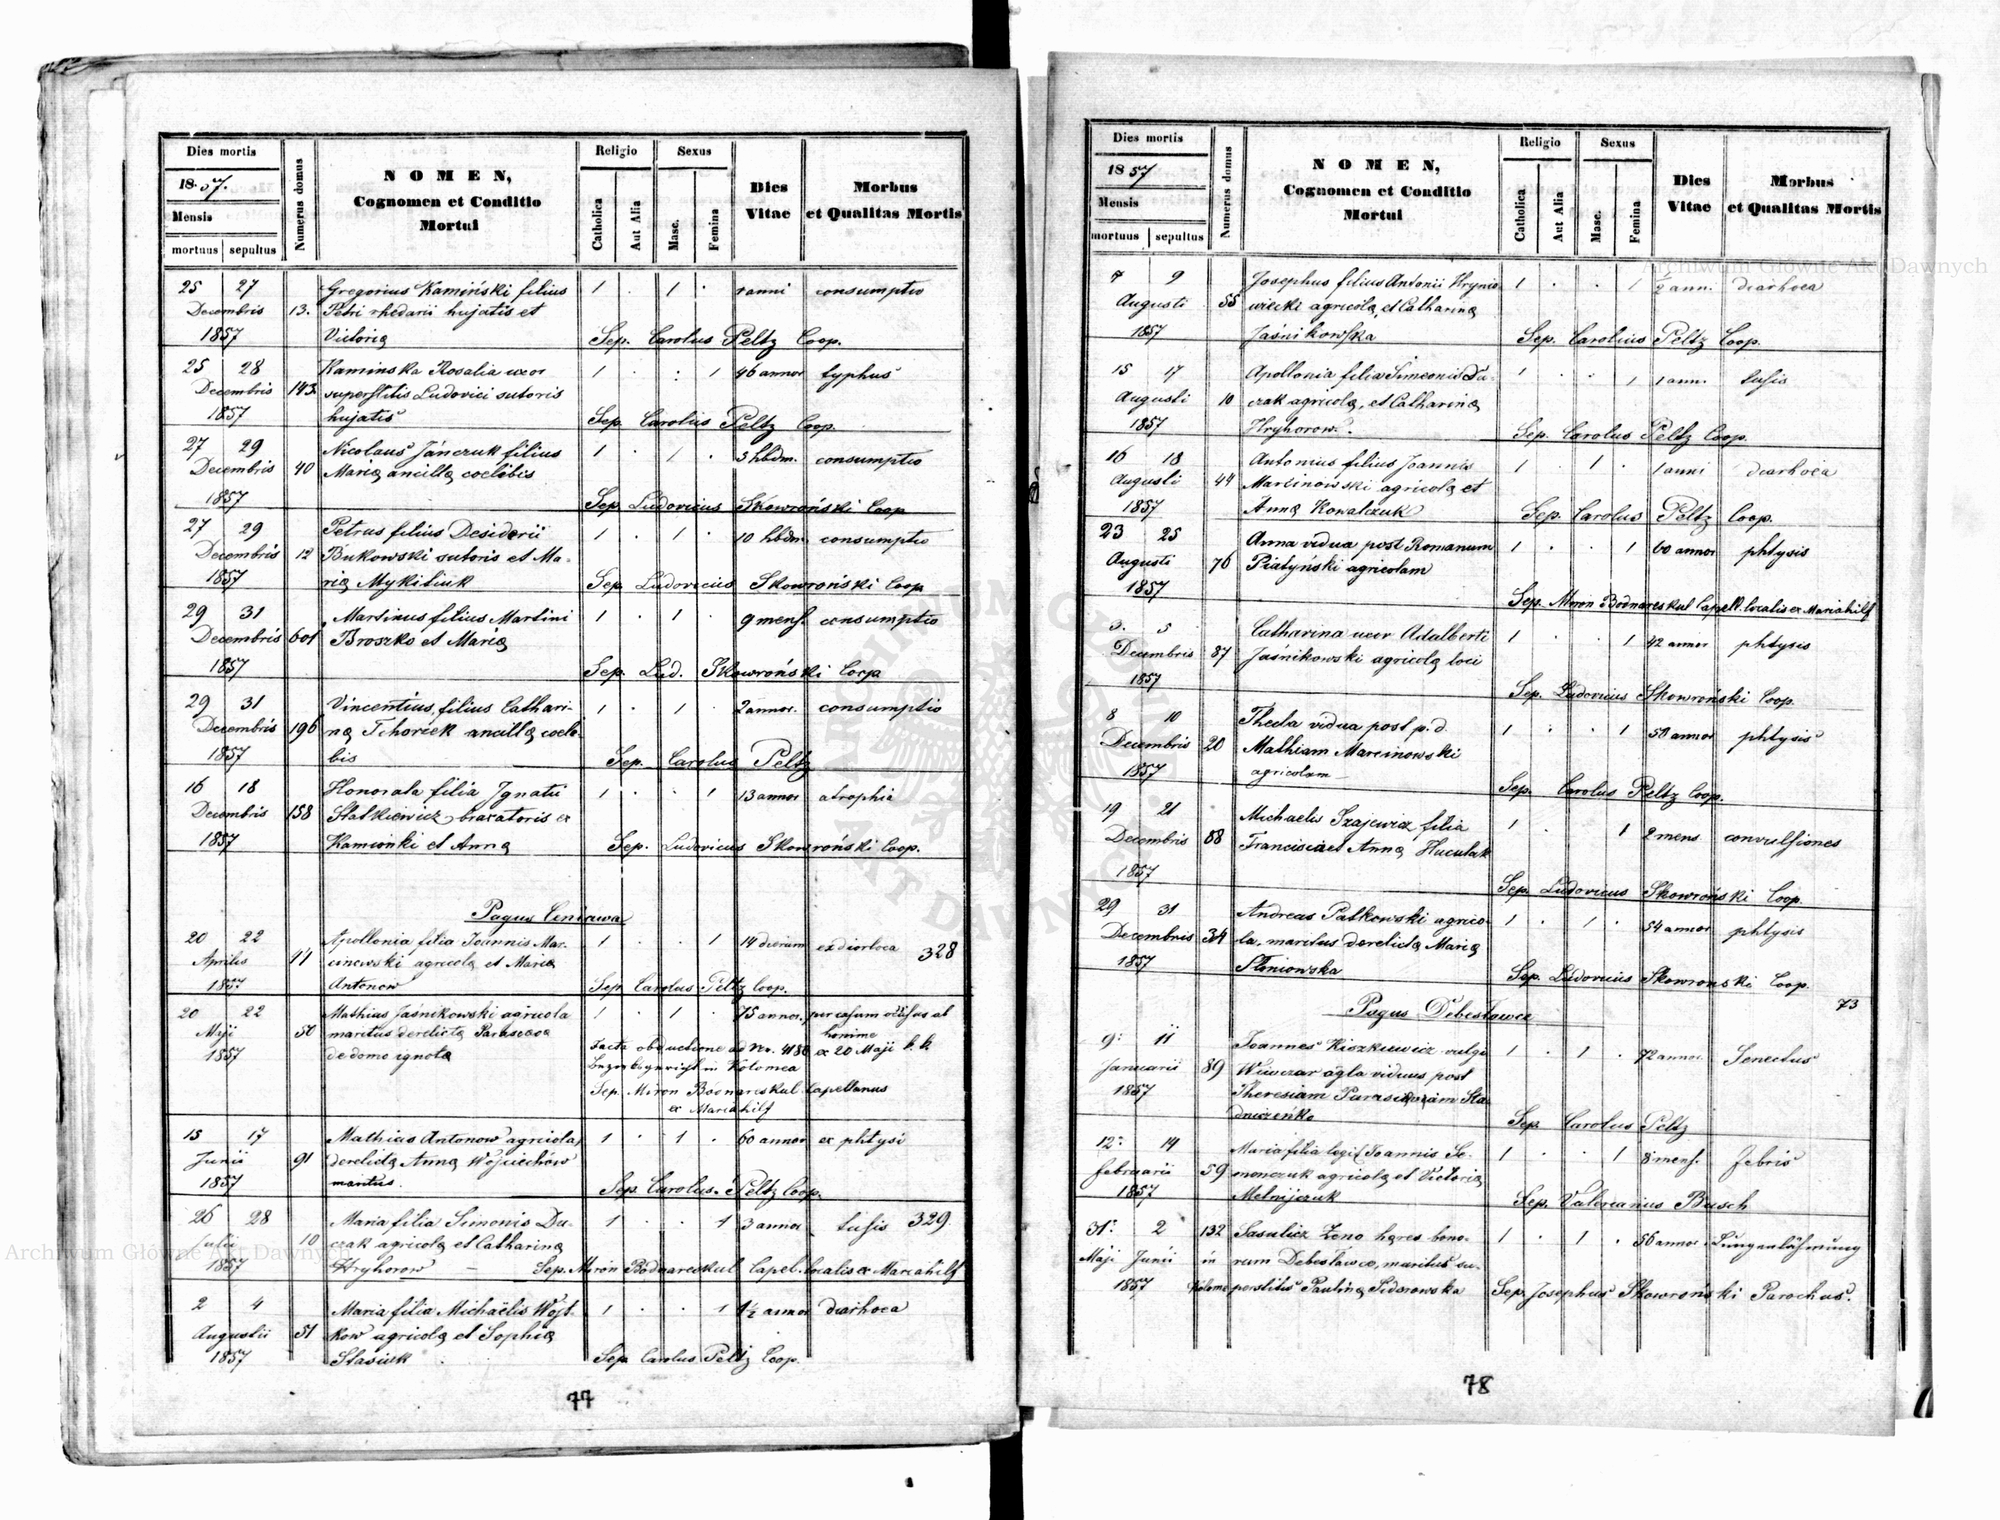 Dies mortis
1857.
Mensis
mortuus sepultus
Numerus domus
NOMEN,
Cognomen et Conditio
Mortui
Religio
Catholica
Aut Alia
Sexus
Masc.
Femina
Dies
Vitae
Morbus
et Qualitas Mortis
25 27 Gregorius Kamiński filius 1 . 1 . anni consumptio
Decembris 13. Petri rhedarii hujatis et
1857 Victoria Sep. Carolus Peltz Coop.
25 28 Kaminska Rosalia uxor 1 . : 1 46 annor typhus
Decembris 143. superstitis Ludovici sutoris
1857 hujatis Sep. Carolus Peltz Coop.
27 29 Nicolaus Jánczuk filius 1 . 1 . 3 hbdm. consumptio
Decembris 40 Maria ancilla coelebis
1857 Sep. Ludovicus Skowroński Coop
27 29 Petrus filius Desiderii 1 . 1 . 10 hbdm. consumptio
Decembris 12 Bukowski sutoris et Ma-
1857 ria Mykitiuk Sep. Ludovicus Skowroński Coop
29 31 Martinus filius Martini 1 . 1 . 9 mens. consumptio
Decembris 601 Broszko et Maria
1857 Sep. Lud. Skowroński Coop
29 31 Vincentius filius Cathari- 1 . 1 . 2 annor. consumptio
Decembris 196 na Tchoriek ancilla coele-
1857 bis Sep. Carolus Peltz
16 18 Honorata filia Ignatii 1 . . 1 13 annor atrophia
Decembris 158 Statkiewicz braxatoris ex
1857 Kamionki et Anna Sep. Ludovicus Skowroński Coop.
Pagus Ceniawa
20 22 Apollonia filia Joannis Mar- 1 . . 1 14 dierum ex diorhoea 328
Aprilis 11 cinowski agricola et Maria
1857 Antonow Sep Carolus Peltz Coop.
20 22 Mathias Jaśnikowski agricola 1 . 1 . 75 annor. per casum occisus ab
Maji 50 maritus derelicta Parasceva homine
1857 de domo ignota Facta obductione ad Nr. 4186 ex 20 Maji k. k.
in Kolomea
Sep. Miron Bodnareskul Capellanus
ex Mariahilf
15 17 Mathias Antonow agricola 1 . 1 . 60 annor ex phtysi
Junii 91 derelicta Anna Wojciechów
1857 maritus. Sep. Carolus Peltz Coop.
26 28 Maria filia Simonis Du- 1 . . 1 3 annor tussis 329
Julii 10 czak agricola et Catharina
1857 Hryhorow — Sep. Miron Bodnareskul Capel. localis ex Mariahilf
2 4 Maria filia Michaëlis Wojt- 1 . . 1 1½ annor diarhoea
Augustii 51 kow agricola et Sophia
1857 Stasiuk Sep. Carolus Peltz Coop.
77
Dies mortis
1857
Mensis
mortuus sepultus
Numerus domus
NOMEN,
Cognomen et Conditio
Mortui
Religio
Catholica
Aut Alia
Sexus
Masc.
Femina
Dies
Vitae
Morbus
et Qualitas Mortis
7 9 Josephus filius Antonii Hrynio- 1 . . 1 2 ann. diarhoea
Augusti 55 wiecki agricola, et Catharina
1857 Jaśnikowska Sep. Carolus Peltz Coop.
15 17 Apollonia filia Simeonis Du- 1 . . 1 1 ann. tusis
Augusti 10 czak agricola, et Catharina
1857 Hryhorow. Sep. Carolus Peltz Coop.
16 18 Antonius filius Joannis 1 . 1 . 1 anni diarhoea
Augusti 44 Marcinówski agricola et
1857 Anna Kowalczuk Sep. Carolus Peltz Coop.
23 25 Anna vidua post Romanum 1 . . 1 60 annor phtysis
Augusti 76 Piatyński agricolam
1857 Sep. Miron Bodnareskul Capell. localis ex Mariahilf
3. 5 Catharina uxor Adalberti 1 . . 1 42 annor phtysis
Decembris 87 Jaśnikowski agricola loci
1857 Sep. Ludovicus Skowroński Coop.
8 10 Thecla vidua post p. d. 1 . . 1 50 annor phtysis
Decembris 20 Mathiam Marcinowski
1857 agricolam Sep. Carolus Peltz Coop.
19 21 Michaelis Szajewicz filia 1 . 1 2 mens convulsiones
Decembris 88 Francisci et Anna Huculak
1857 Sep. Ludovicus Skowroński Coop.
29 31 Andreas Patkowski agrico- 1 . 1 . 54 annor phtysis
Decembris 34 la, maritus derelicta Maria
1857 Słoniowska Sep. Ludovicus Skowronski Coop.
73
Pagus Debeslawce
9. 11 Joannes Kiszkiewicz vulgo 1 . 1 . 72 annor Senectus
Januarii 89 Winczar agla viduus post
1857 Theresiam Sta-
dniczeńko Sep. Carolus Peltz
12. 14 Maria filia legit. Joannis Se- 1 . . 1 8 mens. febris
februarii 59 monczuk agricola et Victoria
1857 Melnijczuk Sep. Valerianus Busch
31. 2 132 Sasulicz Zeno hares bono- 1 . 1 . 56 annor Lungenlähmung
Maji Junii in rum Debeslawce, maritus su-
1857 Kolome perstitis Paulina Sidorowska Sep. Josephus Skowroński Parochus.
78
Archiwum Główne Akt Dawnych
Archiwum Główne Akt Dawnych
ARCHIWUM GŁÓWNE AKT DAWNYCH